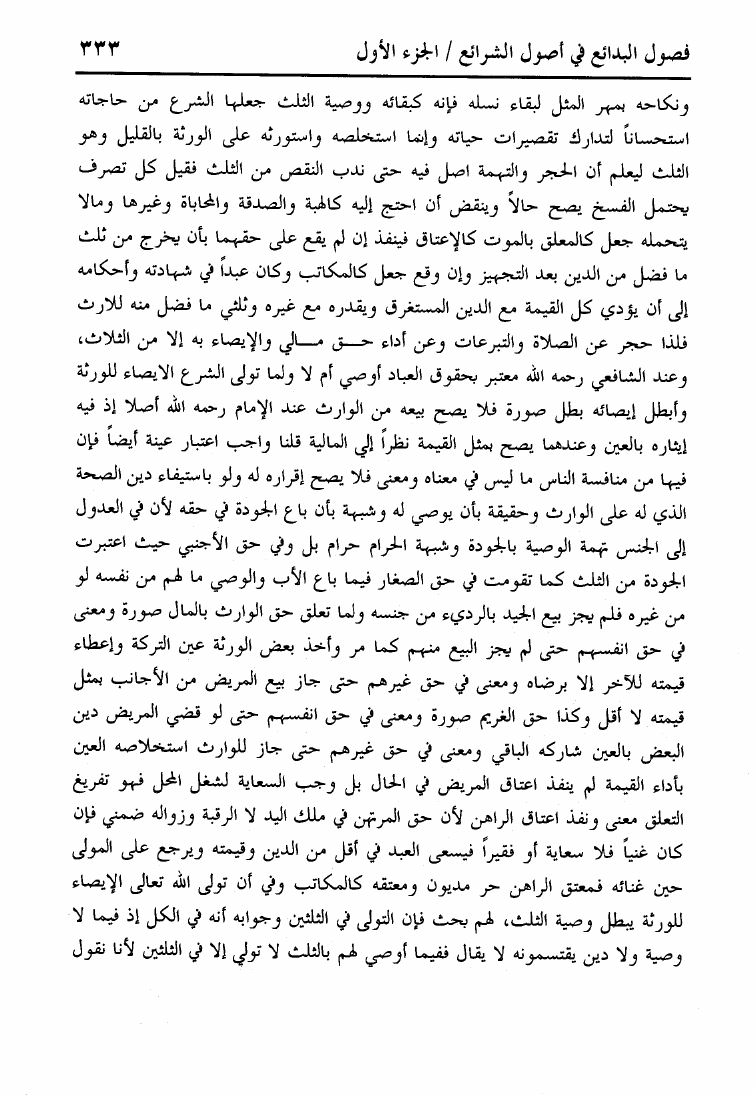 فصول البدائع في أصول الشرائع / الجزء الأول ٣٣٣
ونكاحه بمهر المثل لبقاء نسله فإنه كبقائه ووصية الثلث جعلها الشرع من حاجاته
استحساناً لتدارك تقصيرات حياته وإنما استخلصه واستورثه على الورثة بالقليل وهو
الثلث ليعلم أن الحجر والتهمة اصل فيه حتى ندب النقص من الثلث فقيل كل تصرف
يحتمل الفسخ يصح حالاً وينقض أن احتج إليه كالهبة والصدقة والمحاباة وغيرها ومالا
يتحمله جعل كالمعلق بالموت كالإعتاق فينفذ إن لم يقع على حقهما بأن يخرج من ثلث
ما فضل من الدين بعد التجهيز وإن وقع جعل كالمكاتب وكان عبداً في شهادته وأحكامه
إلى أن يؤدي كل القيمة مع الدين المستغرق ويقدره مع غيره وثلثي ما فضل منه للارث
فلذا حجر عن الصلاة والتبرعات وعن أداء حق مالي والإيصاء به إلا من الثلاث،
وعند الشافعي رحمه الله معتبر بحقوق العباد أوصي أم لا ولما تولى الشرع الايصاء للورثة
وأبطل إيصائه بطل صورة فلا يصح بيعه من الوارث عند الإمام رحمه الله أصلا إذ فيه
إيثاره بالعين وعندهما يصح بمثل القيمة نظراً إلى المالية قلنا واجب اعتبار عينة أيضاً فإن
فيها من منافسة الناس ما ليس في معناه ومعنى فلا يصح إقراره له ولو باستيفاء دين الصحة
الذي له على الوارث وحقيقة بأن يوصي له وشبهة بأن باع الجودة في حقه لأن في العدول
إلى الجنس تهمة الوصية بالجودة وشبهة الحرام حرام بل وفي حق الأجنبي حيث اعتبرت
الجودة من الثلث كما تقومت في حق الصغار فيما باع الأب والوصي ما لهم من نفسه لو
من غيره فلم يجز بيع الجيد بالرديء من جنسه ولما تعلق حق الوارث بالمال صورة ومعنى
في حق انفسهم حتى لم يجز البيع منهم كما مر وأخذ بعض الورثة عين التركة وإعطاء
قيمته للآخر إلا برضاه ومعنى في حق غيرهم حتى جاز بيع المريض من الأجانب بمثل
قيمته لا أقل وكذا حق الغريم صورة ومعنى في حق انفسهم حتى لو قضي المريض دين
البعض بالعين شاركه الباقي ومعنى في حق غيرهم حتى جاز للوارث استخلاصه العين
بأداء القيمة لم ينفذ اعتاق المريض في الحال بل وجب السعاية لشغل المحل فهو تفريغ
التعلق معنى ونفذ اعتاق الراهن لأن حق المرتهن في ملك اليد لا الرقبة وزواله ضمني فإن
كان غنياً فلا سعاية أو فقيراً فيسعى العبد في أقل من الدين وقيمته ويرجع على المولى
حين غنائه فمعتق الراهن حر مديون ومعتقه كالمكاتب وفي أن تولى الله تعالى الإيصاء
للورثة يبطل وصية الثلث، لهم بحث فإن التولى في الثلثين وجوابه أنه في الكل إذ فيما لا
وصية ولا دين يقتسمونه لا يقال ففيما أوصي لهم بالثلث لا تولي إلا في الثلثين لأنا نقول